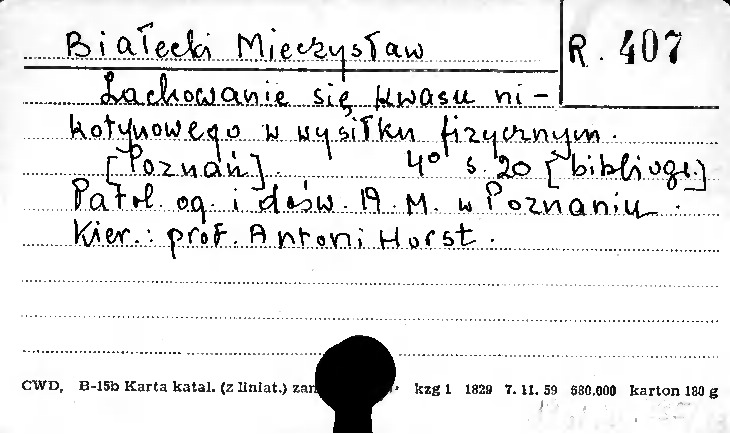 Białecki Mieczysław
R. 407
Zachowanie się kwasu ni-
kotynowego w wysiłku fizycznym.
[Poznań]. 4° s. 20 [bibliogr.]
Patol. og. i dośw. A. M. w Poznaniu.
Kier.: prof. Antoni Horst.
CWD, B-15b Karta katal. (z liniat.) kzg 1 1829 7. 11. 59 680.000 karton 180 g